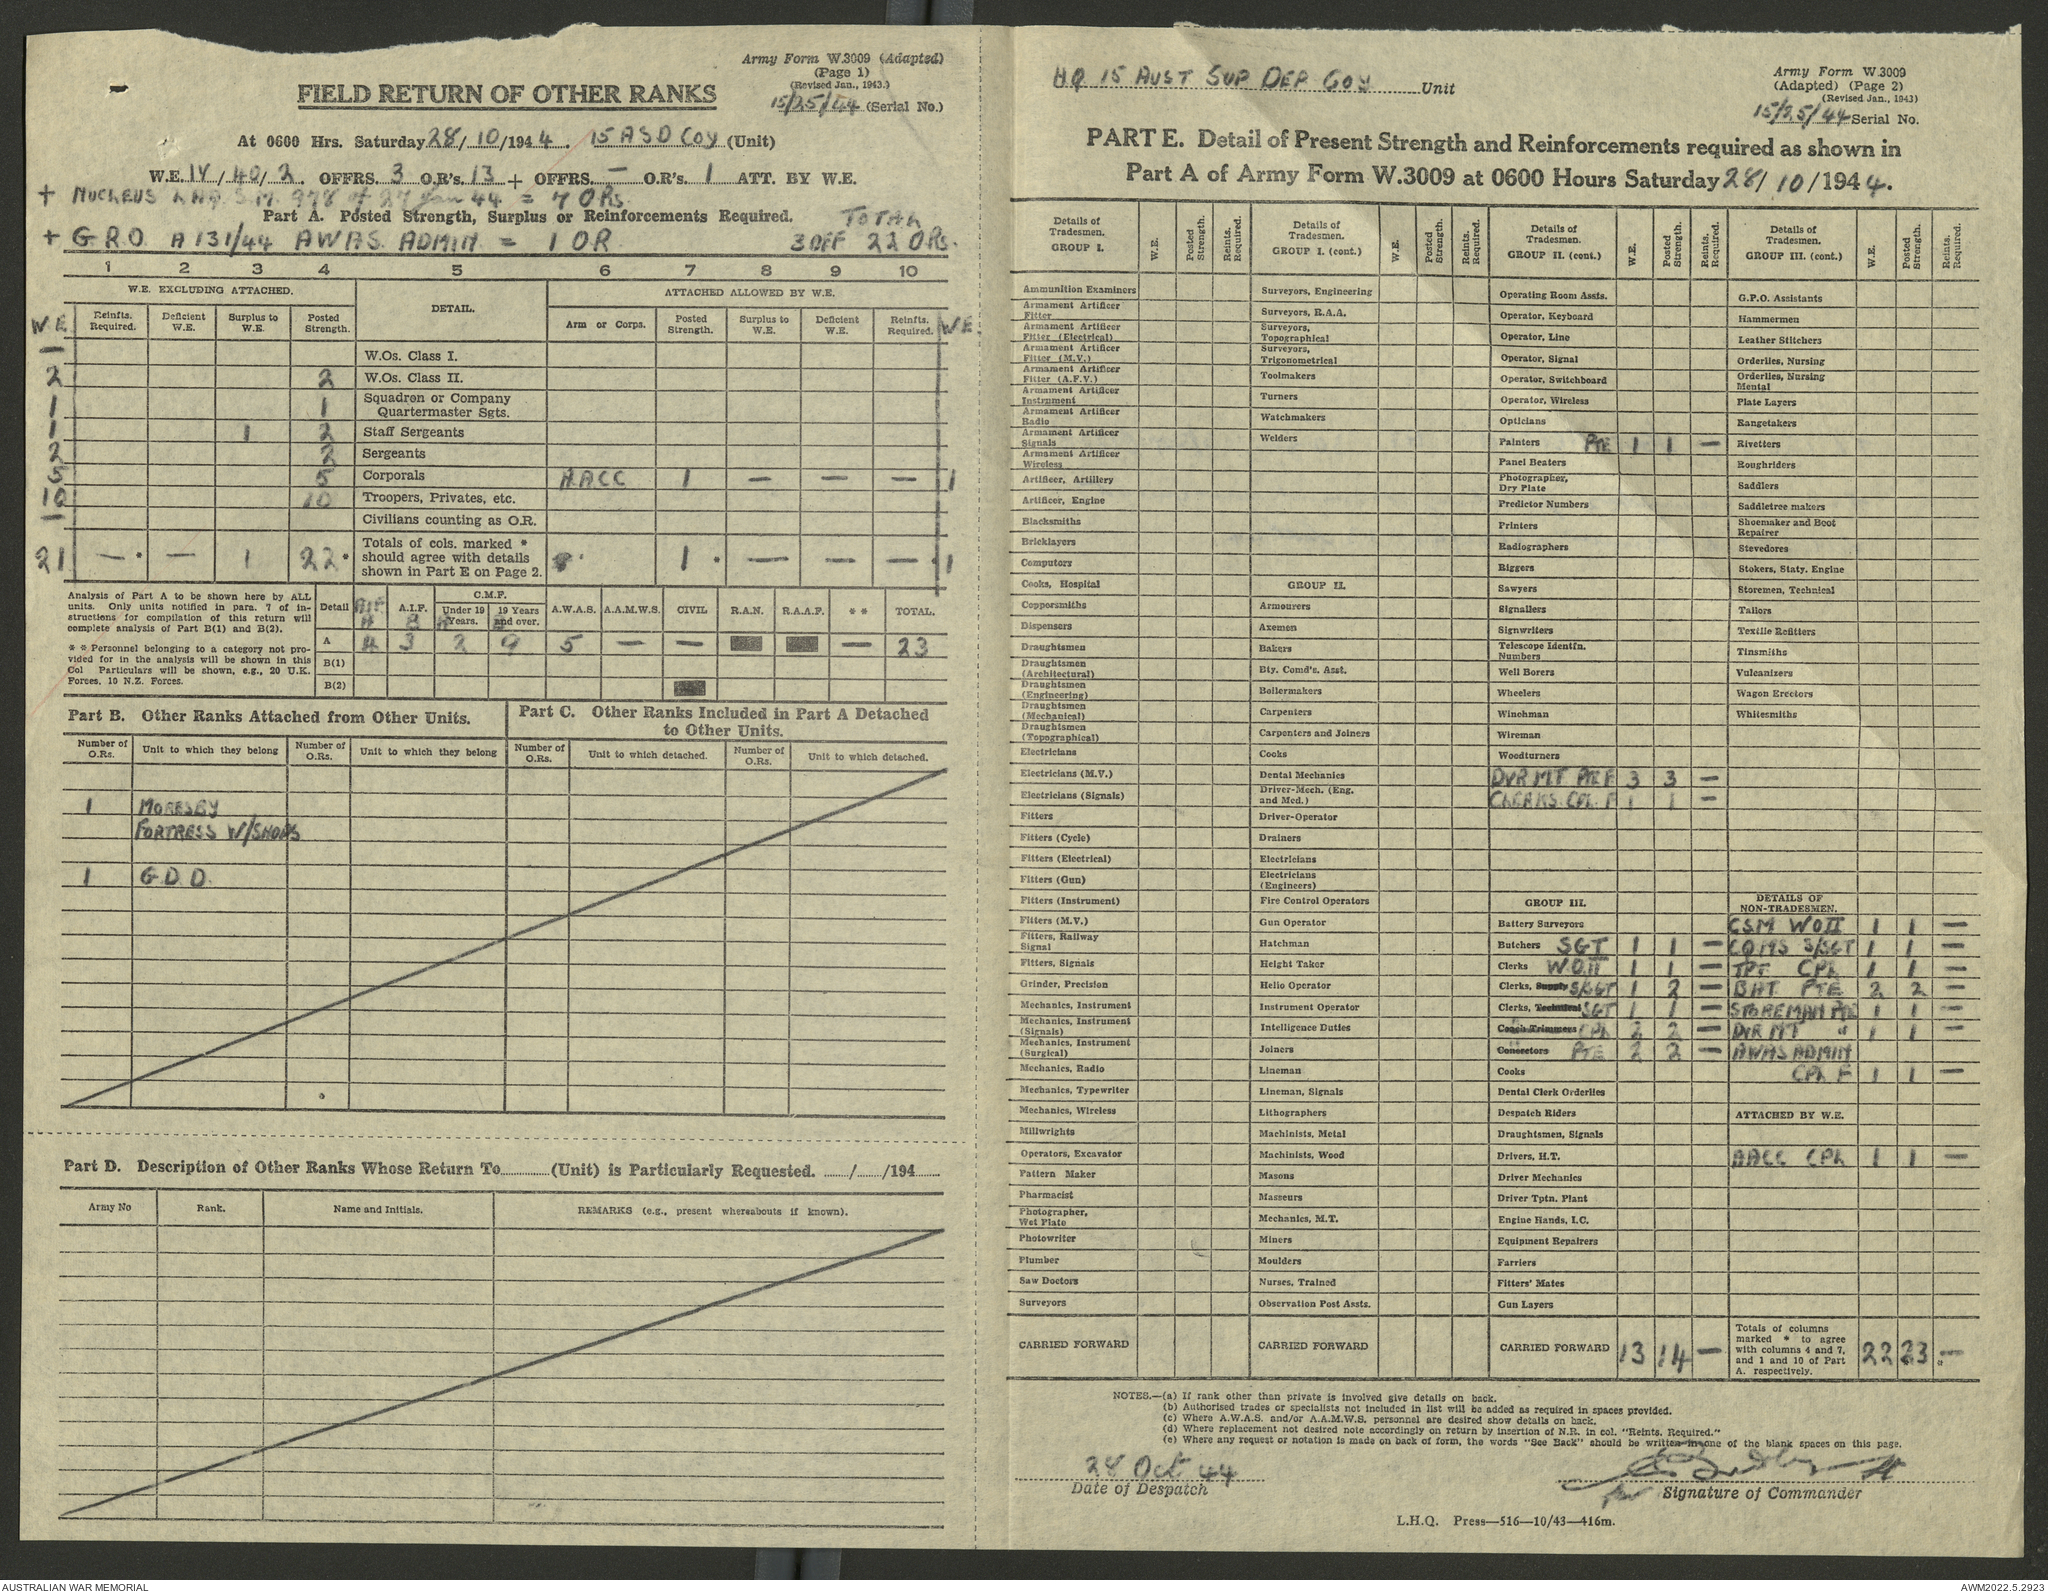 Army Form W.3009 (Adapted)
(Page 1)
(Revised Jan., 1943.)
15/25/44 (Serial No.)
FIELD RETURN OF OTHER RANKS
At 0600 Hrs. Saturday 28/10/1944. 15 ASD COY (Unit)
W.E. IV/40/2. OFFRS. 3 O.R's. 13 + OFFRS. — O.R's. 1 ATT. BY W.E.
+ NUCLEUS LHQ S.M. 978 of 27 Jan 44 = 7 ORs.
Part A. Posted Strength, Surplus or Reinforcements Required. TOTAL
+ GRO A131/44 AWAS ADMIN = 1 OR 3 OFF 22 ORs.
1 2 3 4 5 6 7 8 9 10
W.E. EXCLUDING ATTACHED. DETAIL. ATTACHED ALLOWED BY W.E.
W.E. Reinfts. Required. Deficient W.E. Surplus to W.E. Posted Strength. Arm or Corps. Posted Strength. Surplus to W.E. Deficient W.E. Reinfts. Required. W.E.
— W.Os. Class I.
2 2 W.Os. Class II.
1 1 Squadron or Company Quartermaster Sgts.
1 1 2 Staff Sergeants
2 2 Sergeants
5 5 Corporals AACC 1 — — — 1
10 10 Troopers, Privates, etc.
— Civilians counting as O.R.
21 — * — 1 22 * Totals of cols. marked * should agree with details shown in Part E on Page 2. 1 * — — — * 1
Analysis of Part A to be shown here by ALL units. Only units notified in para. 7 of instructions for compilation of this return will complete analysis of Part B(1) and B(2).
* * Personnel belonging to a category not provided for in the analysis will be shown in this Col Particulars will be shown, e.g., 20 U.K. Forces, 10 N.Z. Forces.
Detail AIF A A.I.F. B C.M.F. Under 19 Years. A 19 Years and over. B A.W.A.S. A.A.M.W.S. CIVIL R.A.N. R.A.A.F. * * TOTAL.
A 4 3 2 9 5 — — — 23
B(1)
B(2)
Part B. Other Ranks Attached from Other Units.
Part C. Other Ranks Included in Part A Detached to Other Units.
Number of O.Rs. Unit to which they belong Number of O.Rs. Unit to which they belong Number of O.Rs. Unit to which detached. Number of O.Rs. Unit to which detached.
1 MORESBY
FORTRESS W/SHOPS
1 G.D.D.
Part D. Description of Other Ranks Whose Return To.......... (Unit) is Particularly Requested. ....../....../194......
Army No Rank. Name and Initials. REMARKS (e.g., present whereabouts if known).
HQ 15 AUST SUP DEP COY Unit
Army Form W.3009
(Adapted) (Page 2)
(Revised Jan., 1943)
15/25/44 Serial No.
PART E. Detail of Present Strength and Reinforcements required as shown in
Part A of Army Form W.3009 at 0600 Hours Saturday 28/10/1944.
Details of Tradesmen. GROUP I. W.E. Posted Strength. Reints. Required.
Ammunition Examiners
Armament Artificer Fitter
Armament Artificer Fitter (Electrical)
Armament Artificer Fitter (M.V.)
Armament Artificer Fitter (A.F.V.)
Armament Artificer Instrument
Armament Artificer Radio
Armament Artificer Signals
Armament Artificer Wireless
Artificer, Artillery
Artificer, Engine
Blacksmiths
Bricklayers
Computors
Cooks, Hospital
Coppersmiths
Dispensers
Draughtsmen
Draughtsmen (Architectural)
Draughtsmen (Engineering)
Draughtsmen (Mechanical)
Draughtsmen (Topographical)
Electricians
Electricians (M.V.)
Electricians (Signals)
Fitters
Fitters (Cycle)
Fitters (Electrical)
Fitters (Gun)
Fitters (Instrument)
Fitters (M.V.)
Fitters, Railway Signal
Fitters, Signals
Grinder, Precision
Mechanics, Instrument
Mechanics, Instrument (Signals)
Mechanics, Instrument (Surgical)
Mechanics, Radio
Mechanics, Typewriter
Mechanics, Wireless
Millwrights
Operators, Excavator
Pattern Maker
Pharmacist
Photographer, Wet Plate
Photowriter
Plumber
Saw Doctors
Surveyors
CARRIED FORWARD
Details of Tradesmen. GROUP I. (cont.) W.E. Posted Strength. Reints. Required.
Surveyors, Engineering
Surveyors, R.A.A.
Surveyors, Topographical
Surveyors, Trigonometrical
Toolmakers
Turners
Watchmakers
Welders
GROUP II.
Armourers
Axemen
Bakers
Bty. Comd's. Asst.
Boilermakers
Carpenters
Carpenters and Joiners
Cooks
Dental Mechanics
Driver-Mech. (Eng. and Med.)
Driver-Operator
Drainers
Electricians
Electricians (Engineers)
Fire Control Operators
Gun Operator
Hatchman
Height Taker
Helio Operator
Instrument Operator
Intelligence Duties
Joiners
Lineman
Lineman, Signals
Lithographers
Machinists, Metal
Machinists, Wood
Masons
Masseurs
Mechanics, M.T.
Miners
Moulders
Nurses, Trained
Observation Post Assts.
CARRIED FORWARD
Details of Tradesmen. GROUP II. (cont.) W.E. Posted Strength. Reints. Required.
Operating Room Assts.
Operator, Keyboard
Operator, Line
Operator, Signal
Operator, Switchboard
Operator, Wireless
Opticians
Painters PTE 1 1 —
Panel Beaters
Photographer, Dry Plate
Predictor Numbers
Printers
Radiographers
Riggers
Sawyers
Signallers
Signwriters
Telescope Identfn. Numbers
Well Borers
Wheelers
Winchman
Wireman
Woodturners
DVR MT PTE F 3 3 —
CLERKS CPL F 1 1 —
GROUP III.
Battery Surveyors
Butchers SGT 1 1 —
Clerks W.O.II 1 1 —
Clerks, Supply S/SGT 1 2 —
Clerks, Technical SGT 1 1 —
Coach Trimmers CPL 2 2 —
Concretors PTE 2 2 —
Cooks
Dental Clerk Orderlies
Despatch Riders
Draughtsmen, Signals
Drivers, H.T.
Driver Mechanics
Driver Tptn. Plant
Engine Hands, I.C.
Equipment Repairers
Farriers
Fitters' Mates
Gun Layers
CARRIED FORWARD 13 14 —
Details of Tradesmen. GROUP III. (cont.) W.E. Posted Strength. Reints. Required.
G.P.O. Assistants
Hammermen
Leather Stitchers
Orderlies, Nursing
Orderlies, Nursing Mental
Plate Layers
Rangetakers
Rivetters
Roughriders
Saddlers
Saddletree makers
Shoemaker and Boot Repairer
Stevedores
Stokers, Staty. Engine
Storemen, Technical
Tailors
Textile Refitters
Tinsmiths
Vulcanizers
Wagon Erectors
Whitesmiths
DETAILS OF NON-TRADESMEN.
CSM WOII 1 1 —
CQMS S/SGT 1 1 —
TPT CPL 1 1 —
BAT PTE 2 2 —
STOREMAN PTE 1 1 —
DVR MT " 1 1 —
AWAS ADMIN
CPL F 1 1 —
ATTACHED BY W.E.
AACC CPL 1 1 —
Totals of columns marked * to agree with columns 4 and 7, and 1 and 10 of Part A. respectively. 22 23 * —
NOTES.—(a) If rank other than private is involved give details on back.
(b) Authorised trades or specialists not included in list will be added as required in spaces provided.
(c) Where A.W.A.S. and/or A.A.M.W.S. personnel are desired show details on back.
(d) Where replacement not desired note accordingly on return by insertion of N.R. in col. "Reints. Required."
(e) Where any request or notation is made on back of form, the words "See Back" should be written in one of the blank spaces on this page.
28 Oct 44
Date of Despatch
for Signature of Commander
L.H.Q. Press—516—10/43—416m.
AUSTRALIAN WAR MEMORIAL
AWM2022.5.2923